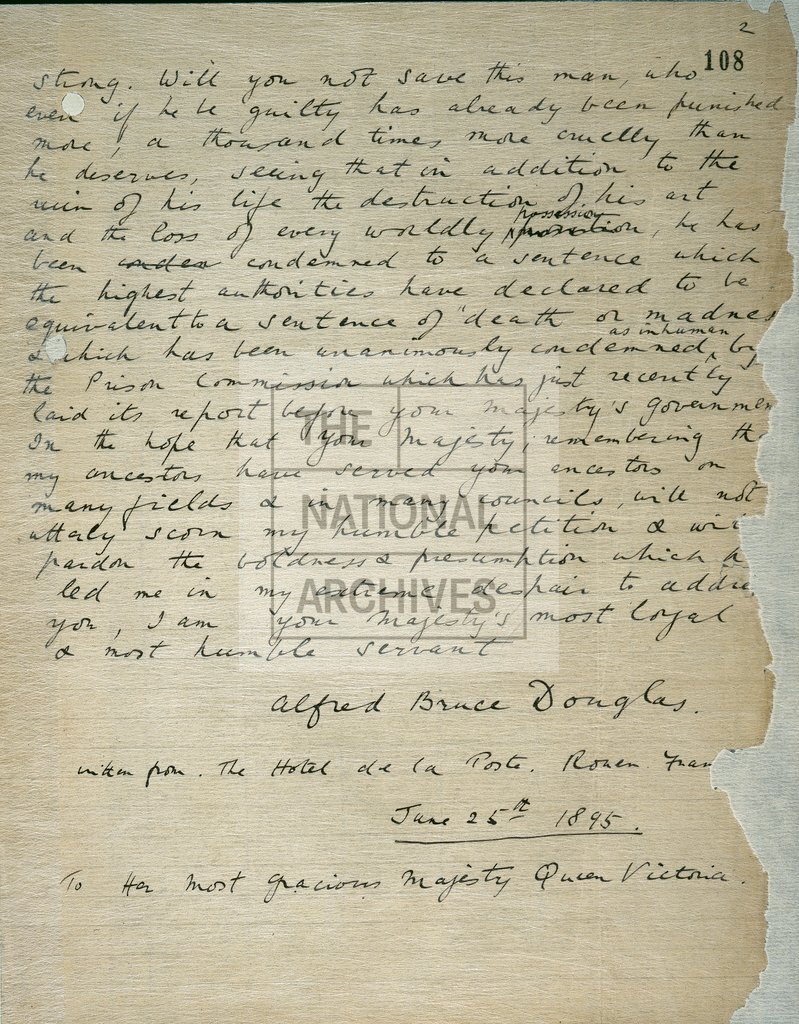 2
108
strong. Will you not save this man, who
even if he be guilty has already been punished
more, a thousand times more cruelly than
he deserves, seeing that in addition to the
ruin of his life the destruction of his art
and the loss of every worldly possession, he has
been condemned to a sentence which
the highest authorities have declared to be
equivalent to a sentence of "death or madnes
as inhuman
& which has been unanimously condemned, by
the Prison Commission which has just recently
laid its report before your Majesty's governmen
In the hope that your Majesty, remembering th
my ancestors have served your ancestors on
many fields & in many councils, will not
utterly scorn my humble petition & wi
pardon the boldness & presumption which h
led me in my extreme despair to addre
you, I am your Majesty's most loyal
& most humble servant
Alfred Bruce Douglas.
written from. The Hotel de la Poste. Rouen. Fran
June 25th 1895.
To Her most gracious Majesty Queen Victoria.
THE
NATIONAL
ARCHIVES